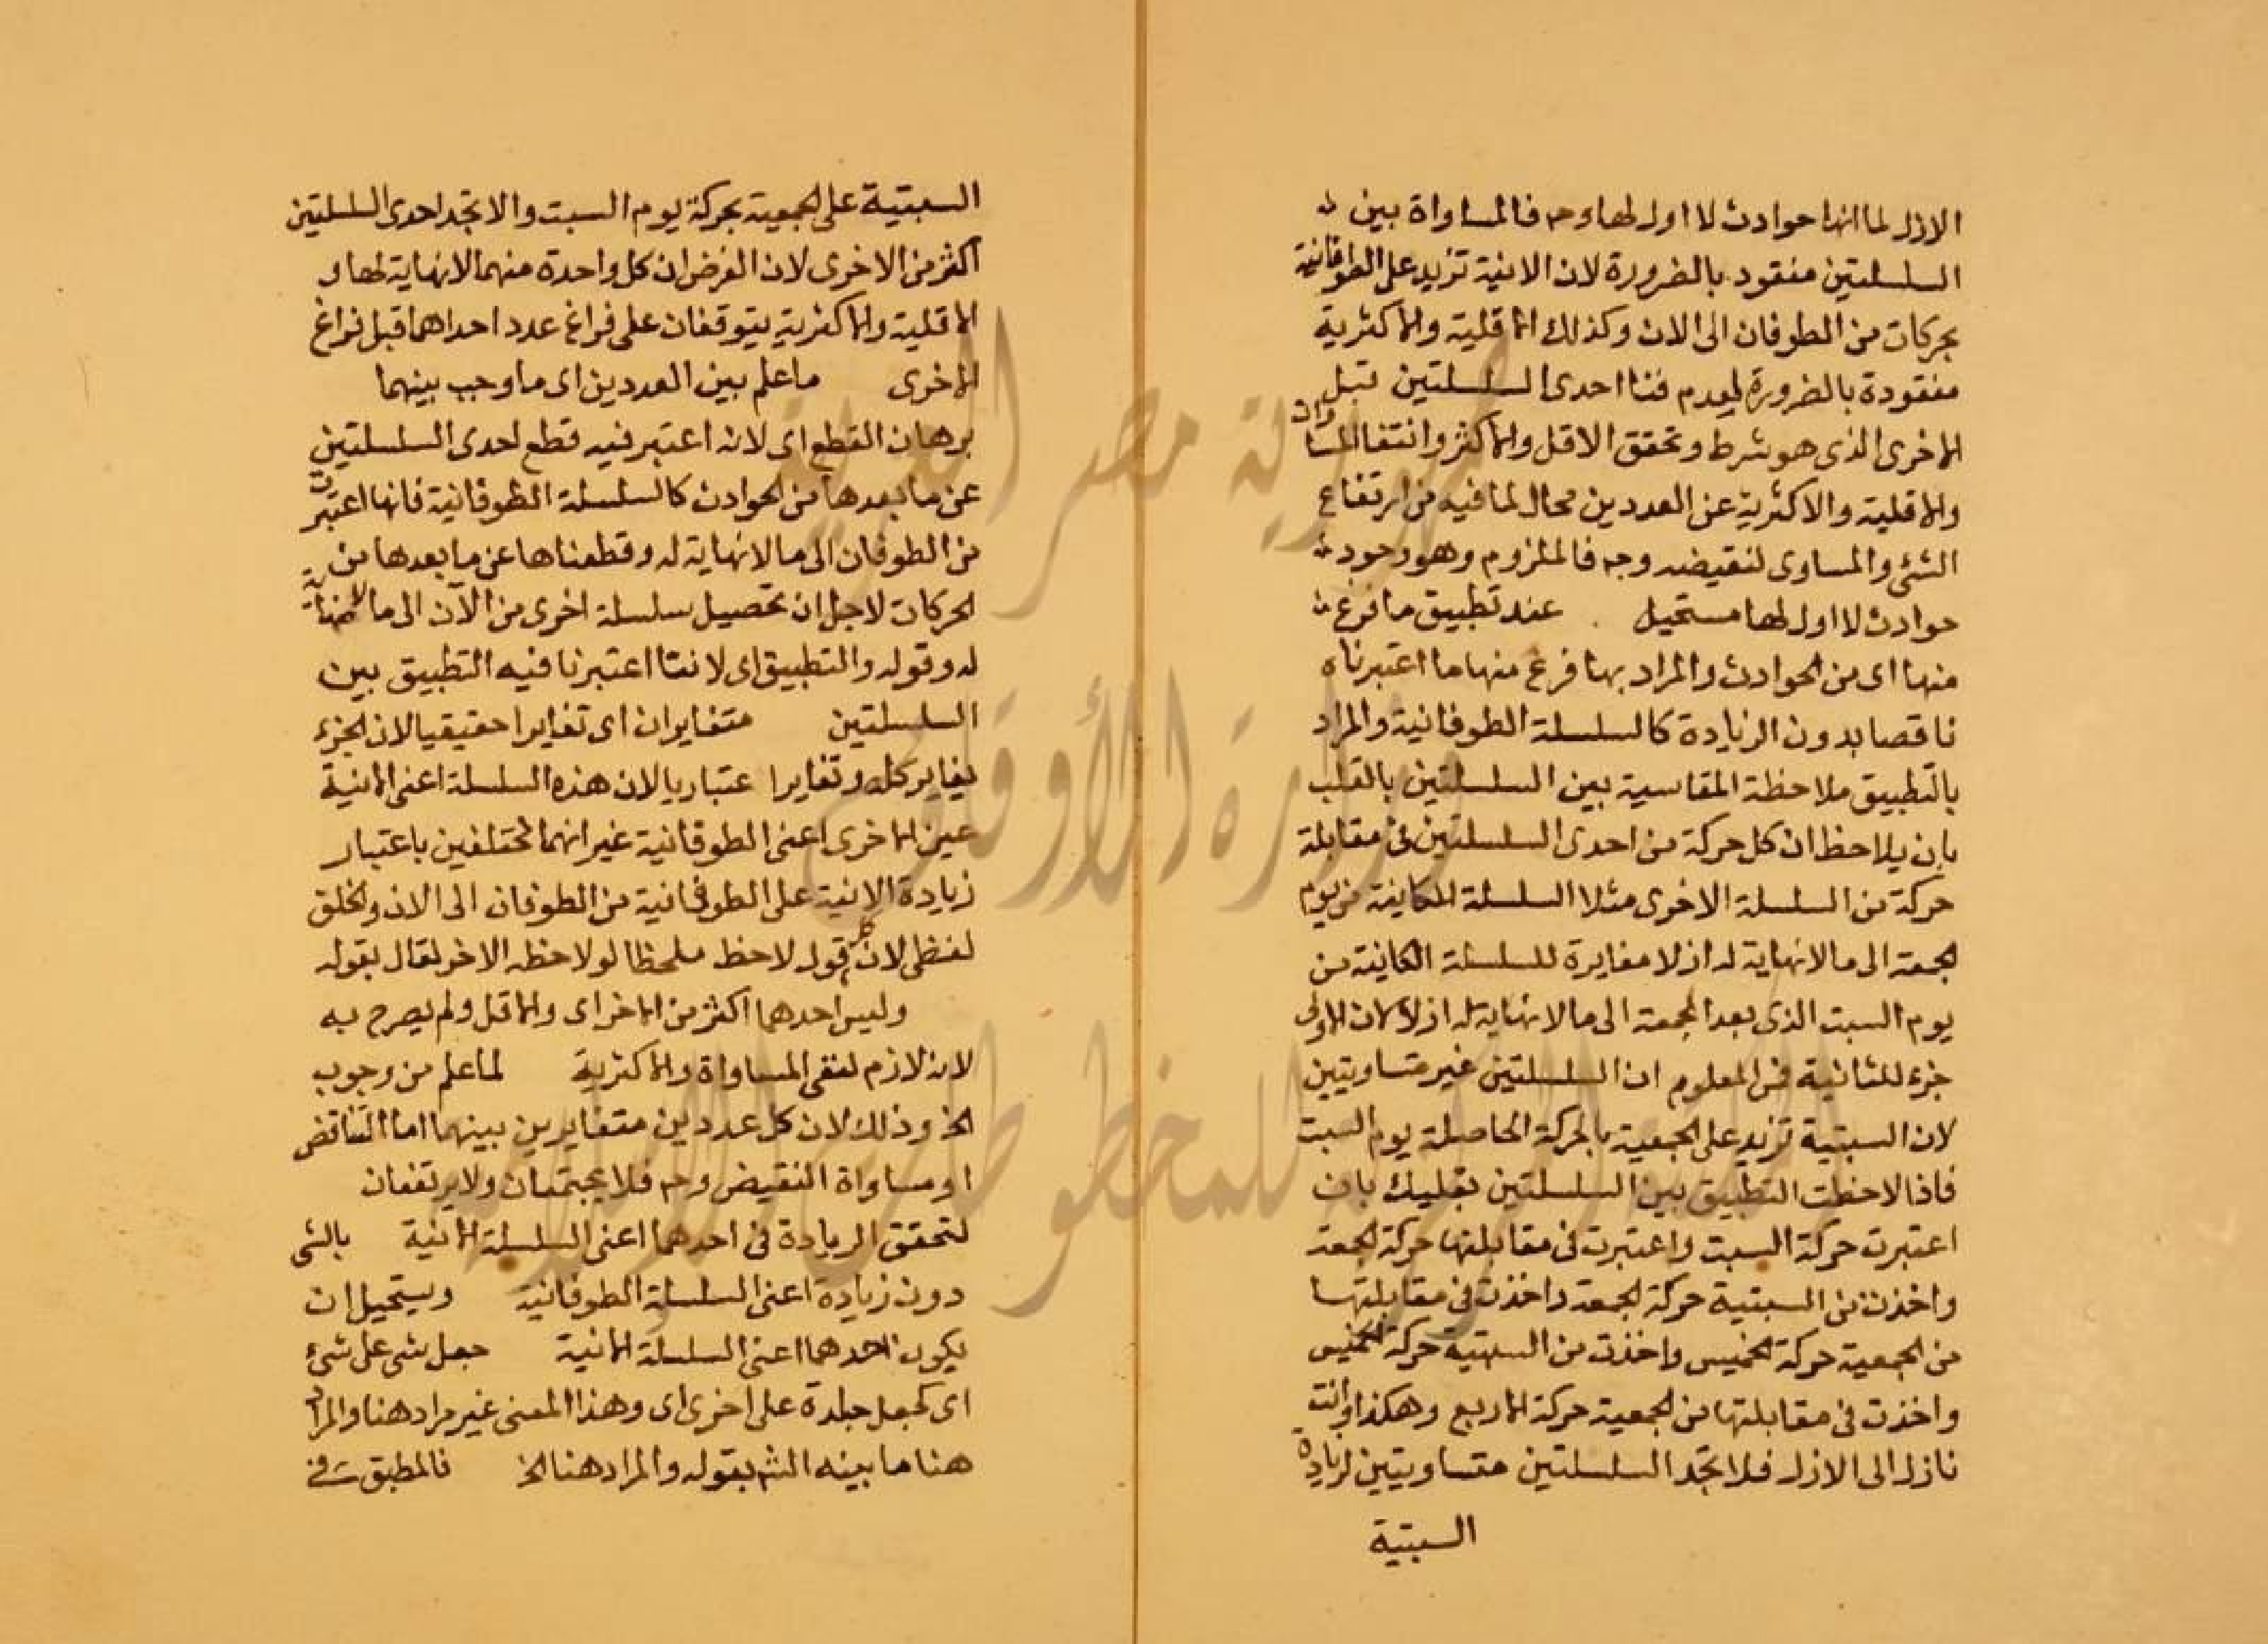 الازل لما انها حوادث لا اول لها وح فالمساواة بين
السلسلتين مفقود بالضرورة لان الانية تزيد على الطوفانية
بحركات من الطوفان الى الان وكذلك الاقلية والاكثرية
مفقودة بالضرورة لعدم فنا احدى السلسلتين قبل
الاخرى الذى هو شرط وتحقق الاقل والاكثر وانتفا المساوات
والاقلية والاكثرية عن العددين محال لما فيه من ارتفاع
الشئ والمساوى لنقيضه وح فالملزوم وهو وجود
حوادث لا اول لها مستحيل . عند تطبيق ما فرغ
منها اى من الحوادث والمراد بما فرغ منها ما اعتبرناه
ناقصا بدون الزيادة كالسلسلة الطوفانية والمراد
بالتطبيق ملاحظة المقاسية بين السلسلتين بالقلب
بان يلاحظ ان كل حركة من احدى السلسلتين فى مقابلة
حركة من السلسلة الاخرى مثلا السلسلة الكاينة من يوم
الجمعة الى ما لا نهاية له اذ لا مغايرة للسلسلة الكاينة من
يوم السبت الذى بعد الجمعة الى ما لا نهاية له اذ لا
جزء للثانية فمن المعلوم ان السلسلتين غير متساويتين
لان السبتية تزيد على الجمعية بالحركة الحاصلة يوم السبت
فاذا لاحظت التطبيق بين السلسلتين بقلبك بان
اعتبرت حركة السبت واعتبرت فى مقابلتها حركة الجمعة
واخذت من السبتية حركة الجمعة واخذت فى مقابلتها
من الجمعية حركة الخميس واخذت من السبتية حركة الخميس
واخذت فى مقابلتها من الجمعية حركة الاربع وهكذا وانت
نازل الى الازل فلا تجد السلسلتين متساويتين لزيادة
السبتية
السبتية على الجمعية بحركة يوم السبت والا تجد احدى السلسلتين
اكثر من الاخرى لان الفرض ان كل واحدة منهما لا نهاية لها و
الاقلية والاكثرية يتوقفان على فراغ عدد احداهما قبل فراغ
الاخرى ما علم بين العددين اى ما وجب بينهما
برهان القطع اى لانه اعتبر فيه قطع احدى السلسلتين
عن ما بعدها من الحوادث كالسلسلة الطوفانية فانها اعتبرت
من الطوفان الى ما لا نهاية له وقطعناها عن ما بعدها من
الحركات لاجل ان تحصيل سلسلة اخرى من الآن الى ما لا نهاية
له وقوله والتطبيق اى لاننا اعتبرنا فيه التطبيق بين
السلسلتين متغايران اى تغايرا حقيقيا لان الجزء
يغاير كله وتغايرا عتباريا لان هذه السلسلة اعنى الانية
عين الاخرى اعنى الطوفانية غير انهما مختلفين باعتبار
زيادة الانية على الطوفانية من الطوفان الى الان والخلق
لفظى لان قول لاحظ ملحظا لو لاحظه الاخر لقال بقوله
وليس احدهما اكثر من الاخر اى والاقل ولم يصرح به
لانه لازم لنفى المساواة والاكثرية لما علم من وجوب
الخ وذلك لان كل عددين متغايرين بينهما اما التناقض
او مساواة النقيض وح فلا يجتمعان ولا يرتفعان
لتحقق الزيادة فى احدهما اعنى السلسلة الانية بالشى
دون زيادة اعنى السلسلة الطوفانية ويستحيل ان
يكون احدهما اعنى السلسلة الانية جعل شى على شئ
اى كجعل جلدة على اخرى اى وهذا المعنى غير مراد هنا والمراد
هنا ما بينه الشم بقوله والمراد هنا الخ فالمطبق فى